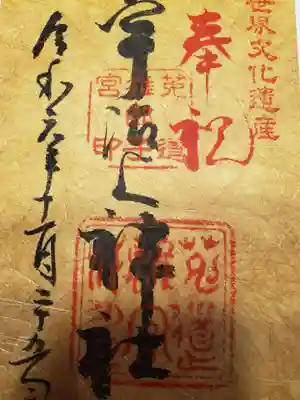 世界文化遺産
奉祝
宇治上神社
菟道
令和六年十一月二十五日